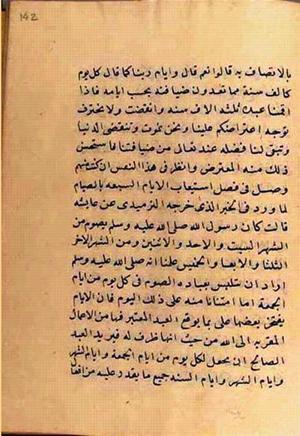 142
بالانصاف به قالوا نعم قال وايام ربنا كما قال كل يوم
كالف سنة مما تعدون ضيافته بحسب ايامه فاذا
اقمنا عنده ثلثة الاف سنة وانقضت ولا نحترف
توجه اعتراضكم علينا ونحن نموت وتنقضى الدنيا
وتبقى لنا فضله عنده تعالى من ضيافتنا فاستحسن
ذلك منه المعترض وانظر فى هذا النفس ان كنت منهم
وصل فى فصل استيعاب الايام السبعة بالصيام
لما ورد فى الخبر الذى خرجه الترمذى عن عايشة
قالت كان رسول الله صلى الله عليه وسلم يصوم من
الشهر السبت والاحد والاثنين ومن الشهر الاخر
الثلثا والاربعا والخميس علنا انه صلى الله عليه وسلم
اراد ان يتلبس بعبادة الصوم فى كل يوم من ايام
الجمعة اما امتنانا منه على ذلك اليوم فان الايام
يفتخر بعضها على بعض بما يوقع العبد المعتبر فيها من الاعمال
المقربة الى الله من حيث انها ظرف له فيريد العبد
الصالح ان يجعل لكل يوم من ايام الجمعة وايام الشهر
وايام الشهر وايام السنة جميع ما يقدر عليه من افعال